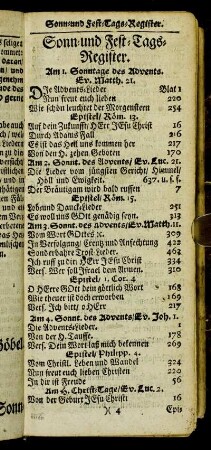 Sonn-und Fest-Tags-Register.
Sonn-und Fest-Tags-
Register.
Am 1. Sonntage des Advents.
Ev. Matth. 21.
Die Advents-Lieder Blat 1
Nun freut euch lieben 220
Wie schön leuchtet der Morgenstern 254
Epistel/ Röm. 13.
Auf dein Zukunfft/ HErr JEsu Christ 16
Durch Adams Fall 216
Es ist das Heil uns kommen her 217
Von den H. zehen Geboten 170
Am 2. Sonnt. des Advents/ Ev. Luc. 21.
Die Lieder vom jüngsten Gericht/ Himmel/
Höll und Ewigkeit. 637. u. f.
Der Bräutigam wird bald ruffen 7
Epistel/ Röm. 15.
Lob-und Danck-Lieder 251
Es woll uns GOtt genädig seyn. 313
Am 3. Sonnt. des Advents/ Ev. Matth. 11.
Vom Wort GOttes 309
In Verfolgung/ Creutz und Anfechtung 422
Sonderbahre Trost-Lieder. 463
Ich ruff zu dir HErr JEsu Christ 334
Vers. Wer soll Israel dem Armen. 310
Epistel/ 1. Cor. 4
O HErre GOtt dein göttlich Wort 168
Wie theuer ist doch erworben 169
Vers. Ich bitt/ o HErr 217
Am 4. Sonnt. des Advents/ Ev. Joh. 1.
Die Advents-Lieder. 1
Von der H. Tauffe. 178
Vers. Dein Wort laß mich bekennen 269
Epistel/ Philipp. 4.
Vom Christl. Leben und Wandel 324
Nun freut euch lieben Christen 220
In dir ist Freude 56
Am H. Christ-Tage/ Ev. Luc. 2.
Von der Geburt JEsu Christi 16
X 4 Epis